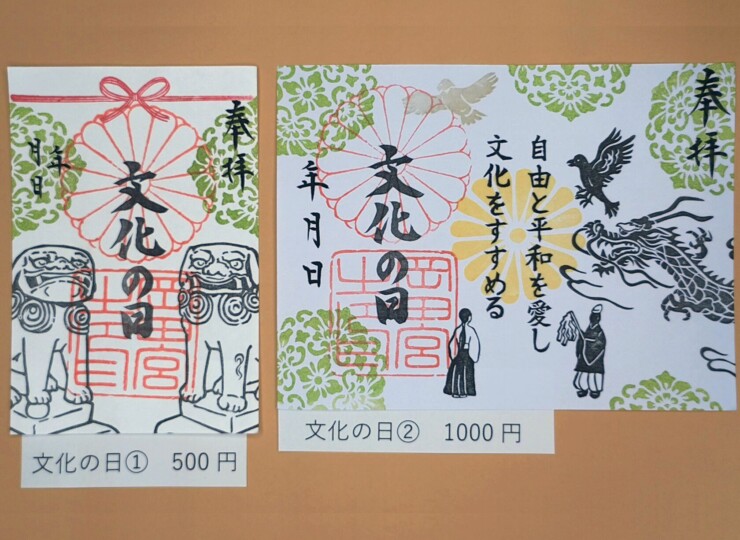 奉拝
文化の日
年
月
日
文化の日① 500円
奉拝
自由と平和を愛し
文化をすすめる
文化の日
年月日
文化の日② 1000円